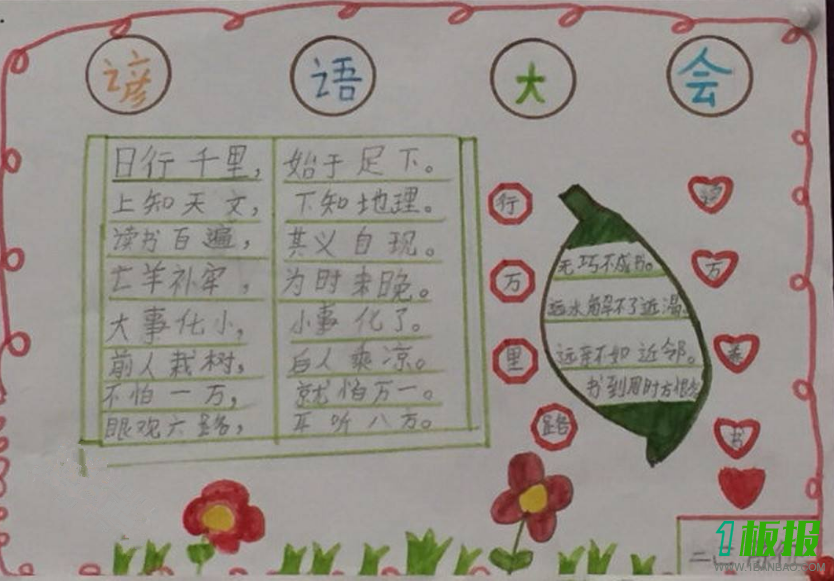 谚语大会
日行千里，始于足下。
上知天文，下知地理。
读书百遍，其义自现。
亡羊补牢，为时未晚。
大事化小，小事化了。
前人栽树，后人乘凉。
不怕一万，就怕万一。
眼观六路，耳听八方。
行
万
里
路
读
万
卷
书
无巧不成书。
远水解不了近渴
远亲不如近邻。
书到用时方恨
1板报
WWW.1BANBAO.COM